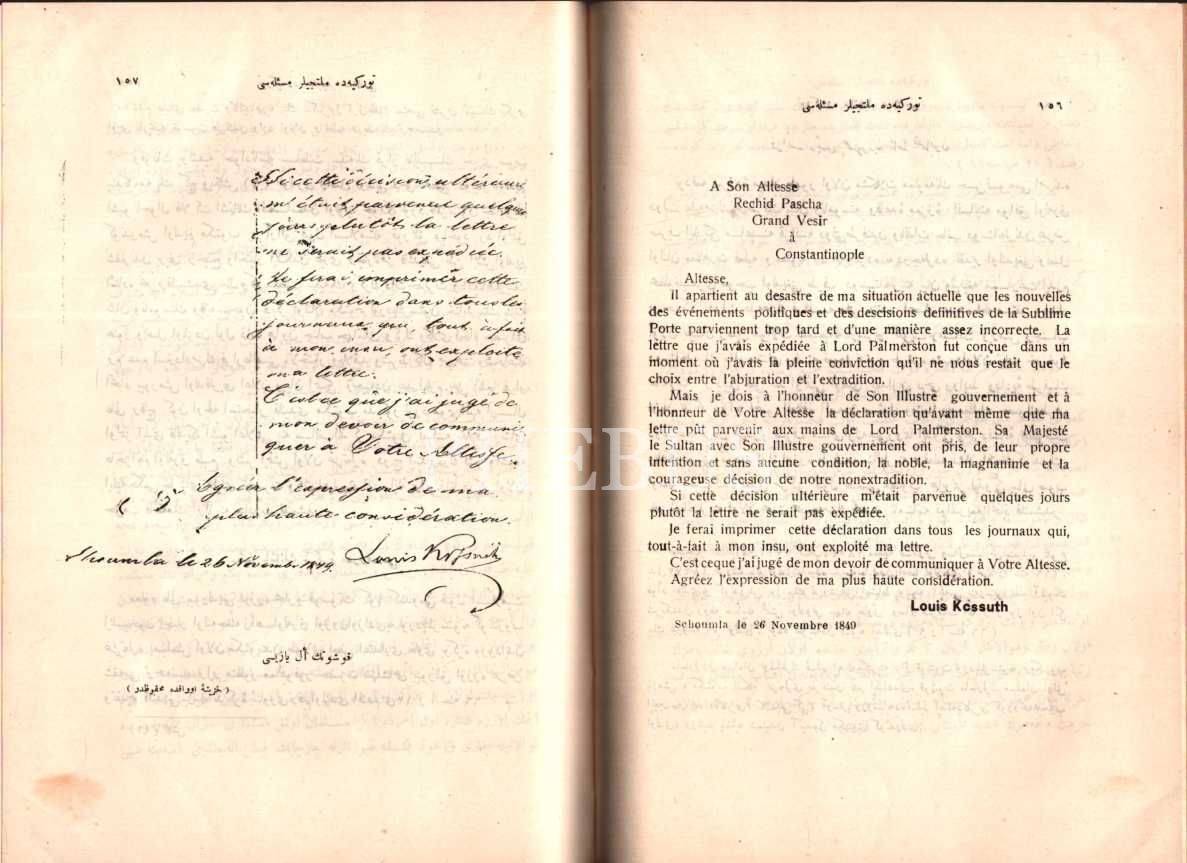 توركیه‌ده ملتجیلر مسئله‌سی ١٥٦
A Son Altesse
Rechid Pascha
Grand Vesir
à
Constantinople
Altesse,
Il apartient au desastre de ma situation actuelle que les nouvelles
des événements politiques et des descisions definitives de la Sublime
Porte parviennent trop tard et d'une manière assez incorrecte. La
lettre que j'avais expédiée à Lord Palmerston fut conçue dans un
moment où j'avais la pleine conviction qu'il ne nous restait que le
choix entre l'abjuration et l'extradition.
Mais je dois à l'honneur de Son Illustre gouvernement et à
l'honneur de Votre Altesse la déclaration qu'avant même que ma
lettre pût parvenir aux mains de Lord Palmerston. Sa Majesté
le Sultan avec Son Illustre gouvernement ont pris, de leur propre
intention et sans aucune condition, la noble, la magnanime et la
courageuse décision de notre nonextradition.
Si cette décision ultérieure m'était parvenue quelques jours
plutôt la lettre ne serait pas expédiée.
Je ferai imprimer cette déclaration dans tous les journaux qui,
tout-à-fait à mon insu, ont exploité ma lettre.
C'est ceque j'ai jugé de mon devoir de communiquer à Votre Altesse.
Agréez l'expression de ma plus haute considération.
Louis Kossuth
Schoumla le 26 Novembre 1849
توركیه‌ده ملتجیلر مسئله‌سی ١٥٧
Si cette décision ultérieure
m'était parvenue quelques
jours plutôt la lettre
ne serait pas expédiée.
Je ferai imprimer cette
déclaration dans tous les
journaux qui, tout à fait
à mon insu ont exploité
ma lettre.
C'est ce que j'ai jugé de
mon devoir de communi
quer à Votre Altesse.
Agréez l'expression de ma
plus haute considération.
Schoumla le 26 Novembre 1849. Louis Kossuth
قوشوتك ال یازیسی
( خزینهٔ اوراقده محفوظدر )